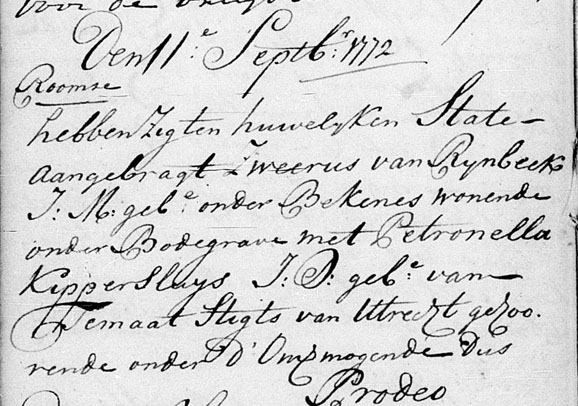 voor de
Den 11.e Septb.r 1772
Roomse
hebben zigten huwelyken State
aangebragt Zweerus van Rynbeek
J: M: geb.e onder Bekenes wonende
onder Bodegrave met Petronella
Kippersluys J: D: geb.e van
Temaat Stigts van Uttrecht gehoo.
rende onder D' Omzmogende Dus
Prodeo